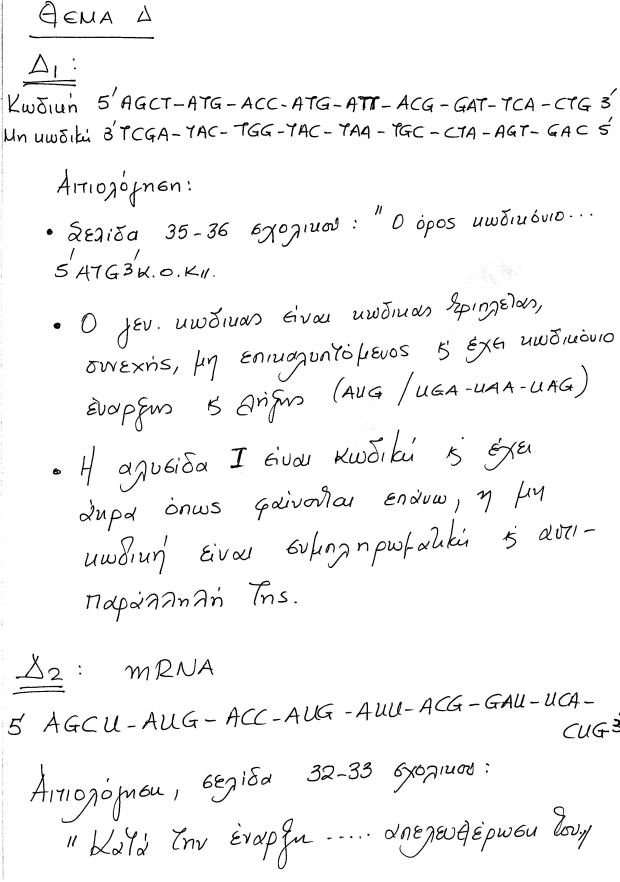 ΘΕΜΑ Δ
Δ1:
Κωδική 5' AGCT-ATG-ACC-ATG-ATT-ACG-GAT-TCA-CTG 3'
Μη κωδική 3' TCGA-TAC-TGG-TAC-TAA-TGC-CTA-AGT-GAC 5'
Αιτιολόγηση:
• Σελίδα 35-36 σχολικού: " Ο όρος κωδικόνιο...
5'ATG3' κ.ο.κ "
• Ο γεν. κώδικας είναι κώδικας τριπλέτας,
συνεχής, μη επικαλυπτόμενος κ' έχει κωδικόνιο
έναρξης κ' λήξης (AUG / UGA-UAA-UAG)
• Η αλυσίδα I είναι κωδική κ' έχει
άκρα όπως φαίνονται επάνω, η μη
κωδική είναι συμπληρωματική κ' αντι-
παράλληλή της.
Δ2: mRNA
5' AGCU-AUG-ACC-AUG-AUU-ACG-GAU-UCA-
CUG 3'
Αιτιολόγηση, σελίδα 32-33 σχολικού:
" Κατά την έναρξη ..... απελευθέρωση του "